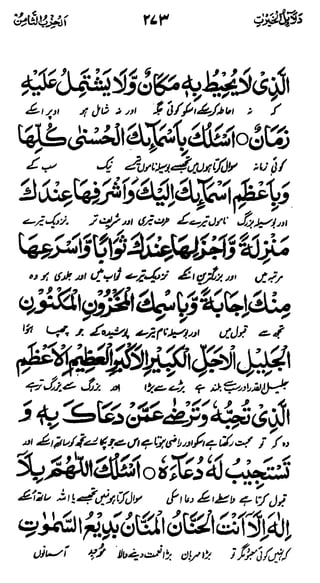 دلائل الخیرات ۲۷۳ الحزب الثامن
الَّذِیْ لَا یُحِیْطُ بِہٖ مَکَانٌ وَّلَا یَشْتَمِلُ عَلَیْہِ
کہ نہ احاطہ کرے اسکو کوئی جگہ اور نہ شامل ہو اوپر اسکے
زَمَانٌ ○ اَسْئَلُکَ بِاَسْمَآئِکَ الْحُسْنٰی کُلِّھَا
کوئی زمانہ سوال کرتا ہوں میں تجھسے بوسیلہ ناموں تیرے نیک سب کے
وَبِاَعْظَمِ اَسْمَآئِکَ اِلَیْکَ وَاَشْرَفِھَا عِنْدَکَ
اور بوسیلہ بزرگ ناموں تیرے کے طرف تیری اور شریف تر نزدیک تیرے
مَنْزِلَۃً وَّاَجْزَلِھَا عِنْدَکَ ثَوَابًا وَّاَسْرَعِھَا
مرتبہ میں اور بزرگترین انکے نزدیک تیرے ثواب میں اور جلدی ہو وہ
مِنْکَ اِجَابَۃً وَّبِاسْمِکَ الْمَخْزُوْنِ الْمَکْنُوْنِ
تجھ سے قبول میں اور بوسیلہ نام تیرے پوشیدہ کے جو چھپا ہوا
الْجَلِیْلِ الْاَجَلِّ الْکَبِیْرِ الْاَکْبَرِ الْعَظِیْمِ الْاَعْظَمِ
جلیل القدر اور سے بلند ہے بڑے سے بڑا اور بزرگ سے بزرگ تر ہے
الَّذِیْ تُحِبُّہٗ وَتَرْضٰی عَمَّنْ دَعَاکَ بِہٖ وَ
وہ کہ تو محبت رکھتا ہے اسکو اور راضی ہوتا ہے اس سے جو پکارے تجھ کو ساتھ اسکے اور
تَسْتَجِیْبُ لَہٗ دُعَآءَہٗ ○ اَسْئَلُکَ اللّٰھُمَّ بِلَآ
قبول کرتا ہے واسطے اسکے دعا اسکی سوال کرتا ہوں میں تجھسے یا اللہ ساتھ اسکے
اِلٰہَ اِلَّآ اَنْتَ الْحَنَّانُ الْمَنَّانُ بَدِیْعُ السَّمٰوٰتِ
کہ نہیں کوئی معبود مگر تو بڑا مہربان بڑا نعمت دینے والا موجد آسمانوں